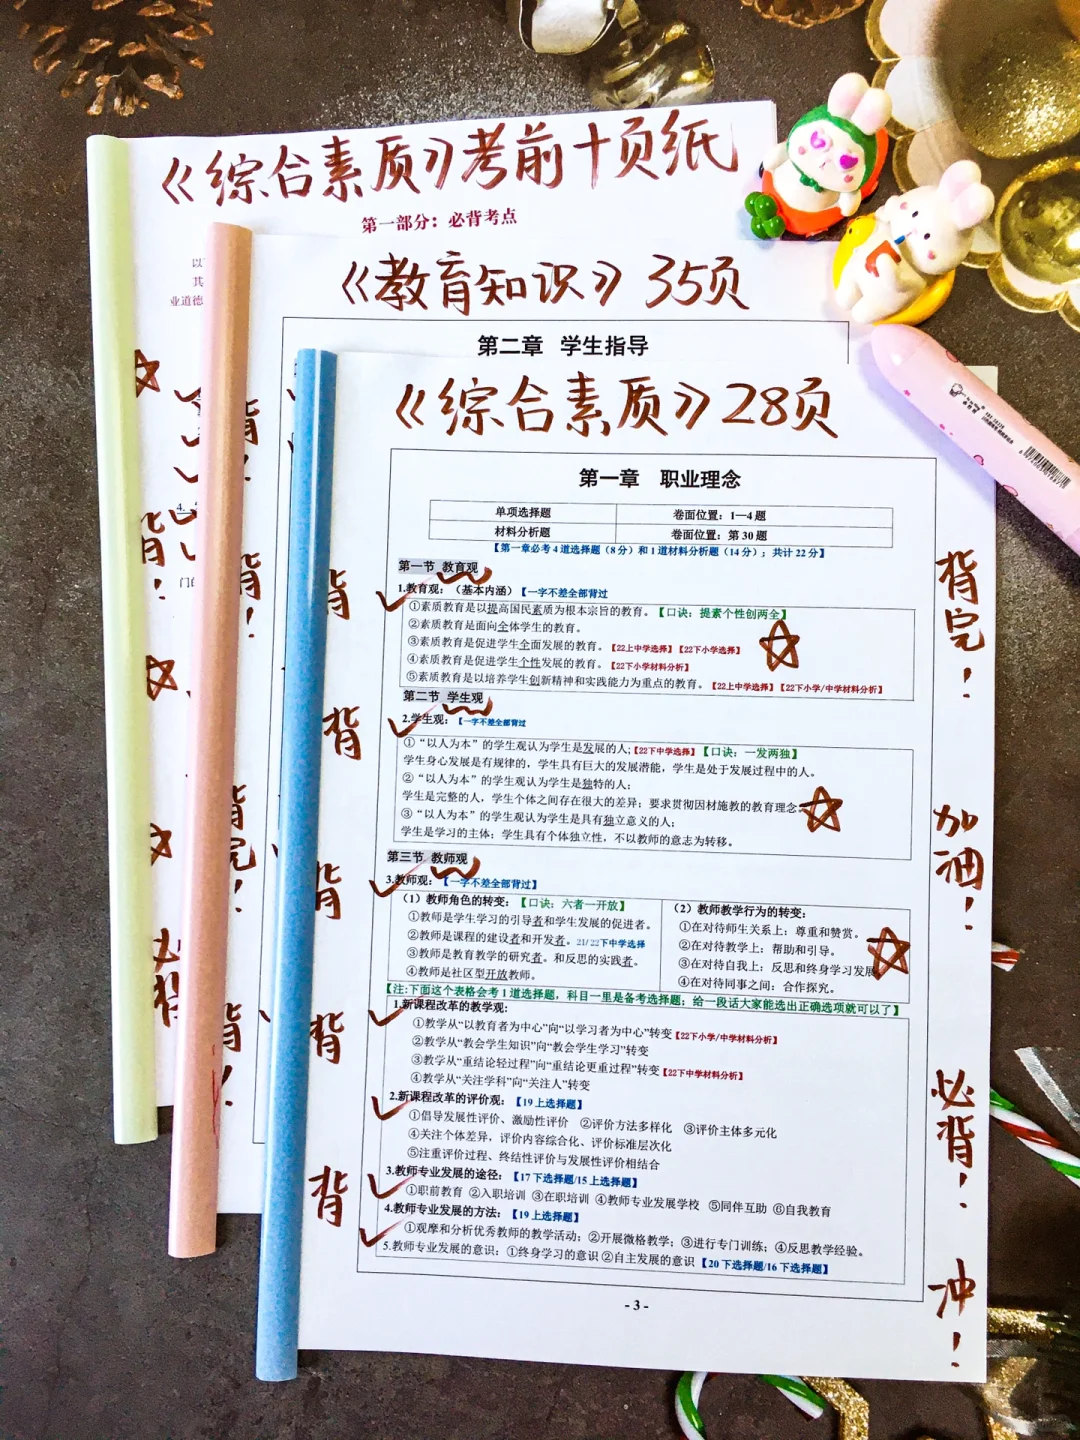 《综合素质》考前十页纸
第一部分：必背考点
业道德
4.
《教育知识》35页
第二章 学生指导
《综合素质》28页
第一章 职业理念
单项选择题 卷面位置：1—4题
材料分析题 卷面位置：第30题
【第一章必考4道选择题（8分）和1道材料分析题（14分）；共计22分】
第一节 教育观
1.教育观：（基本内涵）【一字不差全部背过
①素质教育是以提高国民素质为根本宗旨的教育。【口诀：提素个性创两全】
②素质教育是面向全体学生的教育。
③素质教育是促进学生全面发展的教育。【22上中学选择】【22下小学选择】
④素质教育是促进学生个性发展的教育。【22下小学材料分析】
⑤素质教育是以培养学生创新精神和实践能力为重点的教育。【22上中学选择】【22下小学/中学材料分析】
第二节 学生观
2.学生观：【一字不差全部背过
①“以人为本”的学生观认为学生是发展的人;【22下中学选择】【口诀：一发两独】
学生身心发展是有规律的，学生具有巨大的发展潜能，学生是处于发展过程中的人。
②“以人为本”的学生观认为学生是独特的人；
学生是完整的人，学生个体之间存在很大的差异；要求贯彻因材施教的教育理念
③“以人为本”的学生观认为学生是具有独立意义的人；
学生是学习的主体；学生具有个体独立性，不以教师的意志为转移。
第三节 教师观
3.教师观：【一字不差全部背过】
（1）教师角色的转变：【口诀：六者一开放】
①教师是学生学习的引导者和学生发展的促进者。
②教师是课程的建设者和开发者。21/22下中学选择
③教师是教育教学的研究者。和反思的实践者。
④教师是社区型开放教师。
（2）教师教学行为的转变：
①在对待师生关系上：尊重和赞赏。
②在对待教学上：帮助和引导。
③在对待自我上：反思和终身学习发展
④在对待同事之间：合作探究。
【注:下面这个表格会考1道选择题，科目一里是备考选择题；给一段话大家能选出正确选项就可以了】
1.新课程改革的教学观:
①教学从“以教育者为中心”向“以学习者为中心”转变【22下小学/中学材料分析】
②教学从“教会学生知识”向“教会学生学习”转变
③教学从“重结论轻过程”向“重结论更重过程”转变【22下中学材料分析】
④教学从“关注学科”向“关注人”转变
2.新课程改革的评价观:【19上选择题】
①倡导发展性评价、激励性评价 ②评价方法多样化 ③评价主体多元化
④关注个体差异，评价内容综合化、评价标准层次化
⑤注重评价过程、终结性评价与发展性评价相结合
3.教师专业发展的途径:【17下选择题/15上选择题】
①职前教育 ②入职培训 ③在职培训 ④教师专业发展学校 ⑤同伴互助 ⑥自我教育
4.教师专业发展的方法:【19上选择题】
①观摩和分析优秀教师的教学活动；②开展微格教学；③进行专门训练；④反思教学经验。
5.教师专业发展的意识：①终身学习的意识②自主发展的意识【20下选择题/16下选择题】
- 3 -
背完！
加油！
必背！
冲！
背
背
背
背
背
背！
必背
背
背！
背完！
背